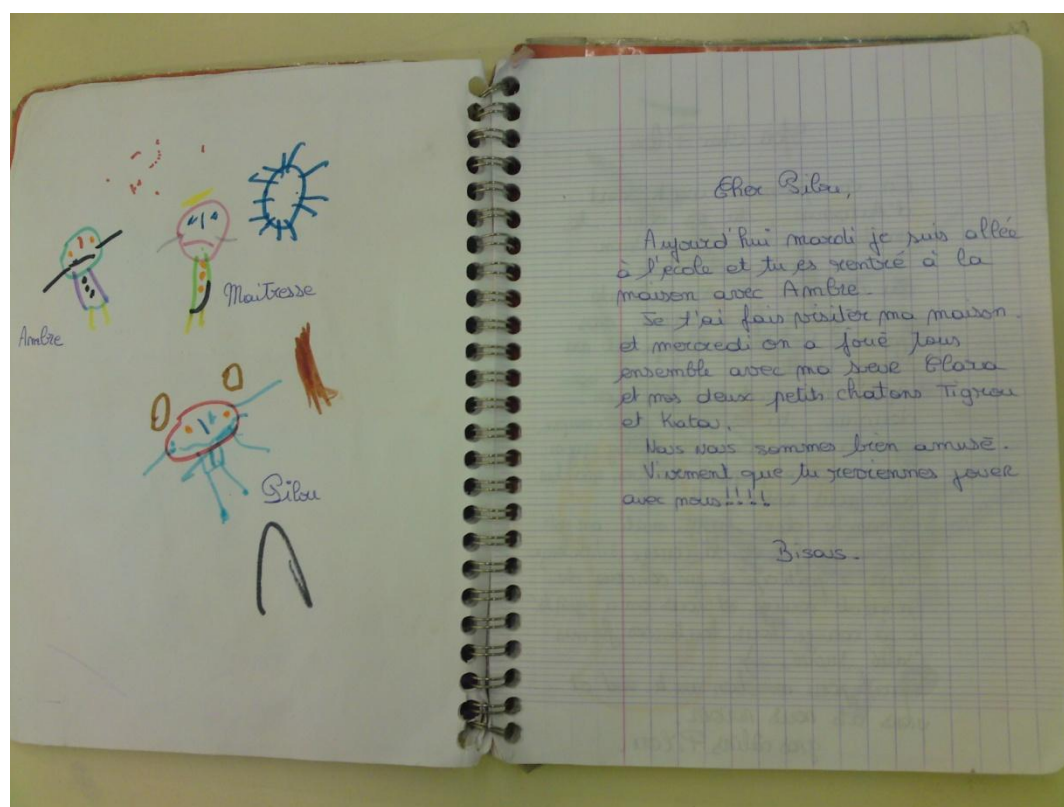 Maitresse
Ambre
Pilou
Cher Pilou,
Aujourd'hui mardi je suis allée
à l'école et tu es rentré à la
maison avec Ambre.
Je t'ai fais visiter ma maison.
et mercredi on a joué tous
ensemble avec ma sœur Clara
et mes deux petits chatons Tigrou
et Kata.
Nous nous sommes bien amusé.
Vivement que tu reviennes jouer
avec nous!!!!
Bisous.